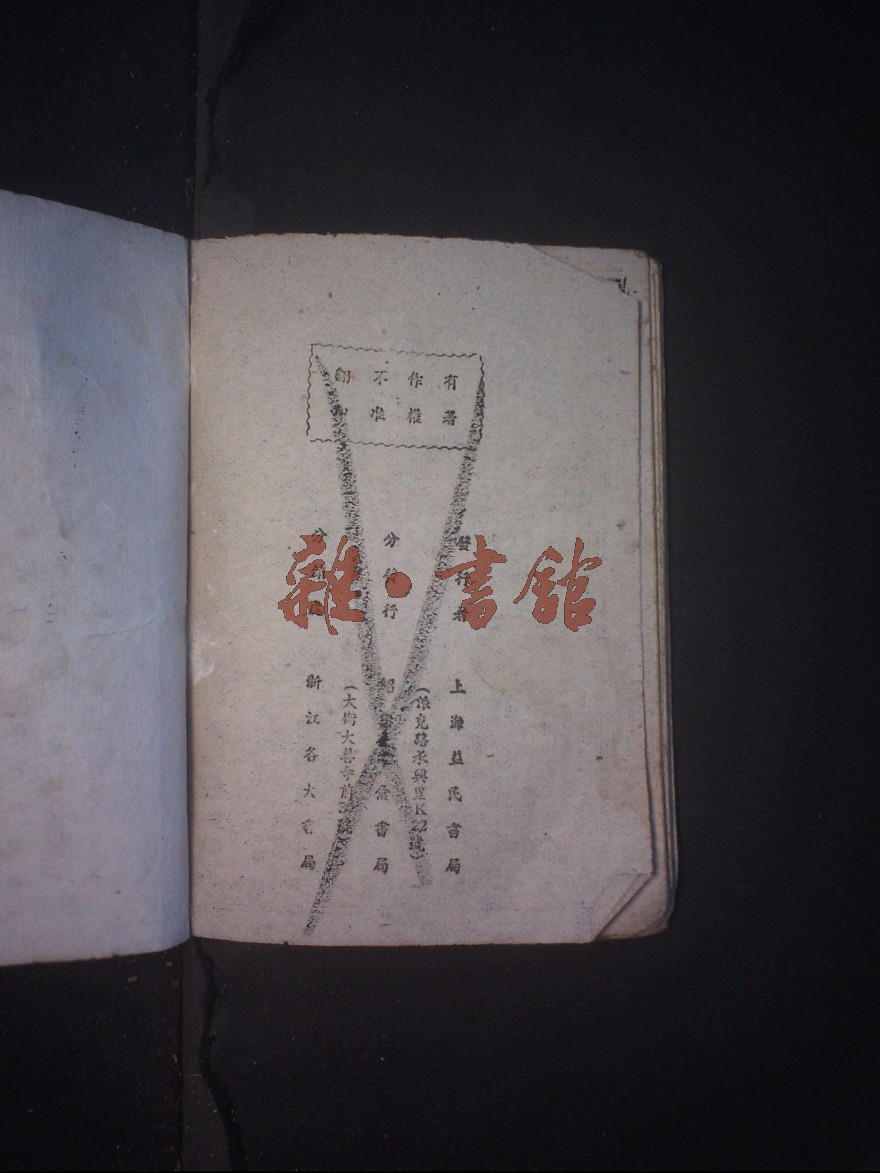 有著
作權
不准
翻
發行者
上海益民書局
(傑克路承興里K22號)
分發行
紹 書局
(大街大善寺前 號)
分
浙江各大書局
雜·書館